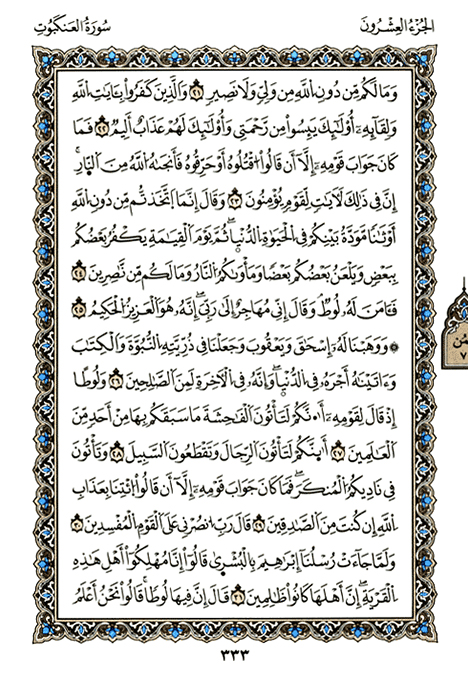 الجزء العشرون
سورة العنكبوت
وَمَا لَكُم مِّن دُونِ اِللَّهِ مِنْ وَلِيٍّ وَلَا نَصِيرٍ ٢١ وَالَّذِينَ كَفَرُوا بِـَٔايَٰتِ اِللَّهِ
وَلِقَآئِهِۦٓ أُوْلَٰٓئِكَ يَئِسُوا مِن رَّحْمَتِي وَأُوْلَٰٓئِكَ لَهُمْ عَذَابٌ أَلِيمٌ ٢٢ فَمَا
كَانَ جَوَابَ قَوْمِهِۦٓ إِلَّآ أَن قَالُوا اُقْتُلُوهُ أَوْ حَرِّقُوهُ فَأَنجَىٰهُ اُللَّهُ مِنَ اَلنَّارِ
إِنَّ فِي ذَٰلِكَ لَأٓيَٰتٍ لِّقَوْمٍ يُؤْمِنُونَ ٢٣ وَقَالَ إِنَّمَا اَتَّخَذتُّم مِّن دُونِ اِللَّهِ
أَوْثَٰنًا مَّوَدَّةً بَيْنَكُمْ فِي اِلْحَيَوٰةِ اِلدُّنْيَا ثُمَّ يَوْمَ اَلْقِيَٰمَةِ يَكْفُرُ بَعْضُكُم
بِبَعْضٍ وَيَلْعَنُ بَعْضُكُم بَعْضًا وَمَأْوَىٰكُمُ اُلنَّارُ وَمَا لَكُم مِّن نَّٰصِرِينَ ٢٤
فَـَٔامَنَ لَهُۥ لُوطٌ وَقَالَ إِنِّي مُهَاجِرٌ إِلَىٰ رَبِّي إِنَّهُۥ هُوَ اَلْعَزِيزُ اُلْحَكِيمُ ٢٥
۞ وَوَهَبْنَا لَهُۥٓ إِسْحَٰقَ وَيَعْقُوبَ وَجَعَلْنَا فِي ذُرِّيَّتِهِ اِلنُّبُوَّةَ وَالْكِتَٰبَ
وَءَاتَيْنَٰهُ أَجْرَهُۥ فِي اِلدُّنْيَا وَإِنَّهُۥ فِي اِلْأٓخِرَةِ لَمِنَ اَلصَّٰلِحِينَ ٢٦ وَلُوطًا
إِذْ قَالَ لِقَوْمِهِۦٓ أَئِنَّكُمْ لَتَأْتُونَ اَلْفَٰحِشَةَ مَا سَبَقَكُم بِهَا مِنْ أَحَدٍ مِّنَ
اَلْعَٰلَمِينَ ٢٧ أَئِنَّكُمْ لَتَأْتُونَ اَلرِّجَالَ وَتَقْطَعُونَ اَلسَّبِيلَ ٢٨ وَتَأْتُونَ
فِي نَادِيكُمُ اُلْمُنكَرَ فَمَا كَانَ جَوَابَ قَوْمِهِۦٓ إِلَّآ أَن قَالُوا اُئْتِنَا بِعَذَابِ
اِللَّهِ إِن كُنتَ مِنَ اَلصَّٰدِقِينَ ٢٩ قَالَ رَبِّ اِنصُرْنِي عَلَى اَلْقَوْمِ اِلْمُفْسِدِينَ ٣٠
وَلَمَّا جَآءَتْ رُسُلُنَآ إِبْرَٰهِيمَ بِالْبُشْرَىٰ قَالُوٓا إِنَّا مُهْلِكُوٓا أَهْلِ هَٰذِهِ
اِلْقَرْيَةِ إِنَّ أَهْلَهَا كَانُوا ظَٰلِمِينَ ٣١ قَالَ إِنَّ فِيهَا لُوطًا قَالُوا نَحْنُ أَعْلَمُ
٣٣٣